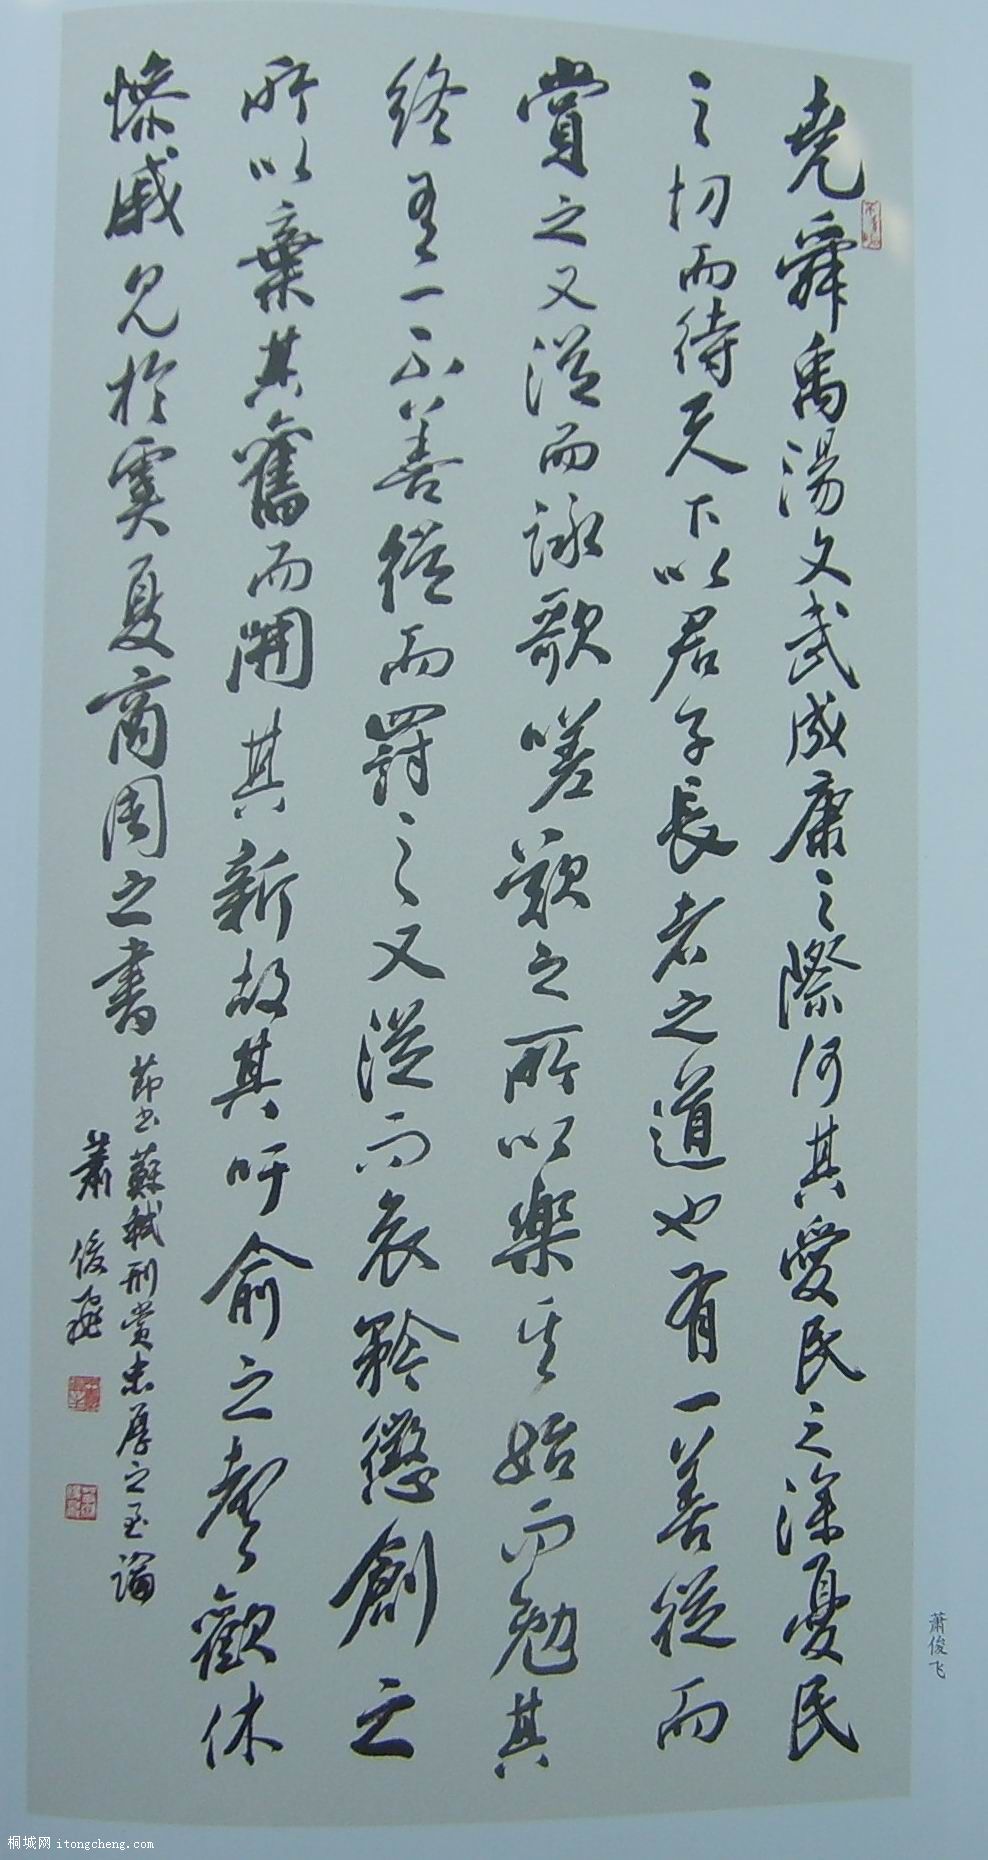 堯舜禹湯文武成康之際何其愛民之深憂民
之切而待天下以君子長者之道也有一善從而
賞之又從而詠歌嗟歎之所以樂其始而勉其
終有一不善從而罰之又從而哀矜懲創之
所以棄其舊而開其新故其吁俞之聲歡休
慘戚見於虞夏商周之書節書蘇軾刑賞忠厚之至論
蕭俊飛
萧俊飞
桐城网 itongcheng.com